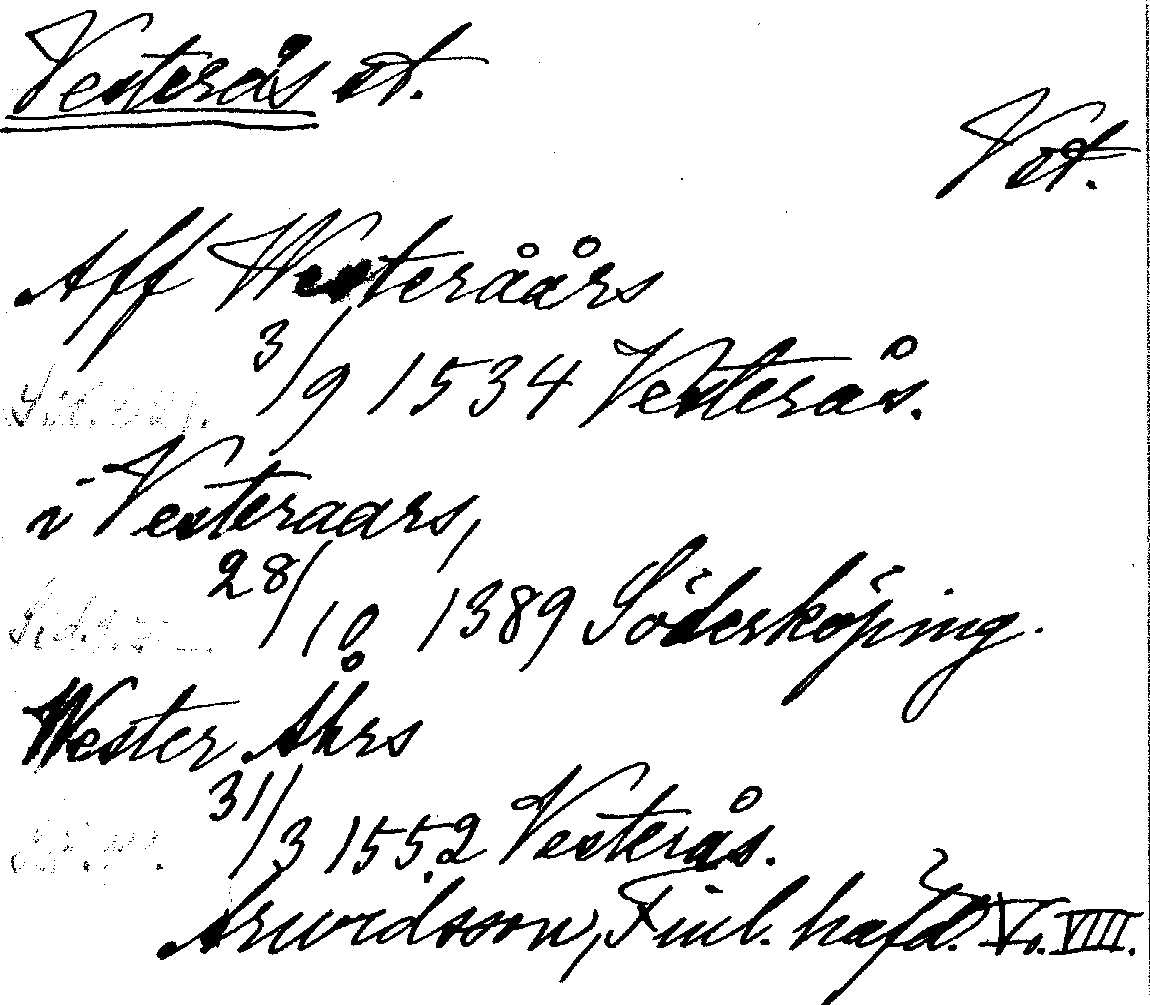 Vesterås st.
Vst.
Aff Westeråårs
3/9 1534 Vesterås.
i Vesteraars,
28/10 1389 Söderköping.
Wester Åhrs
31/3 1552 Vesterås.
Arwidsson, Finl. hafd. V. VIII.